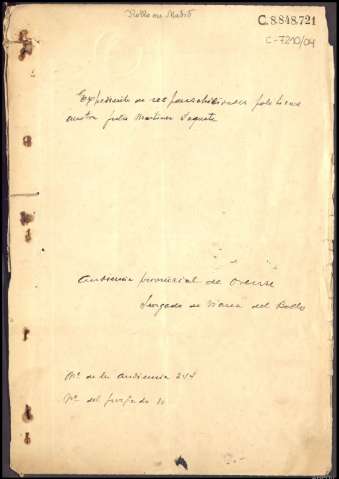 Rollo en Madrid
C.8.848.721
C-7210/04
Expediente de responsabilidades politicas
contra Julio Martinez
Audiencia provincial de Orense
Juzgado de Viana del Bollo
Nº de la Audiencia 244
Nº del juzgado